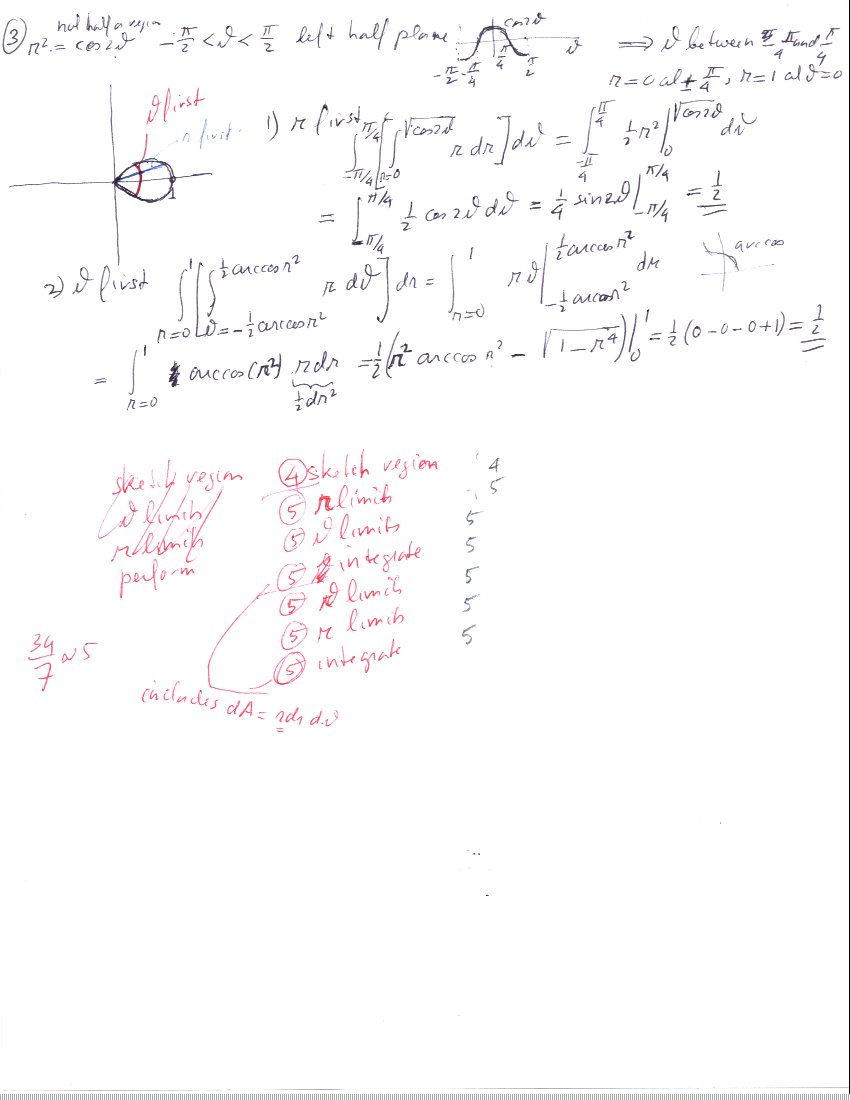 not half a region
③ r² = cos2ϑ -π/2 < ϑ < π/2 left half plane cos2ϑ ϑ ⟹ ϑ between π/4 and π/4
-π/2 -π/4 π/4 π/2
r=0 at ± π/4, r=1 at ϑ=0
ϑ first
r first
1
1) r first ∫_{-π/4}^{π/4} [∫_{r=0}^{√cos2ϑ} r dr] dϑ = ∫_{-π/4}^{π/4} ½r² |_0^{√cos2ϑ} dϑ
= ∫_{-π/4}^{π/4} ½ cos2ϑ dϑ = ¼ sin2ϑ |_{-π/4}^{π/4} = ½
2) ϑ first ∫_{r=0}^{1} [∫_{ϑ=-½arccosr²}^{½arccosr²} r dϑ] dr = ∫_{r=0}^{1} rϑ |_{-½arccosr²}^{½arccosr²} dr
arccos
= ∫_{r=0}^{1} arccos(r²) r dr = ½(r² arccos r² - √(1-r⁴)) |_0^1 = ½(0-0-0+1) = ½
½dr²
sketch region
ϑ limits
r limits
perform
④ sketch region 4
⑤ r limits 5
⑤ ϑ limits 5
⑤ integrate 5
⑤ ϑ limits 5
⑤ r limits 5
⑤ integrate 5
34/7 ~ 5
includes dA = rdr dϑ